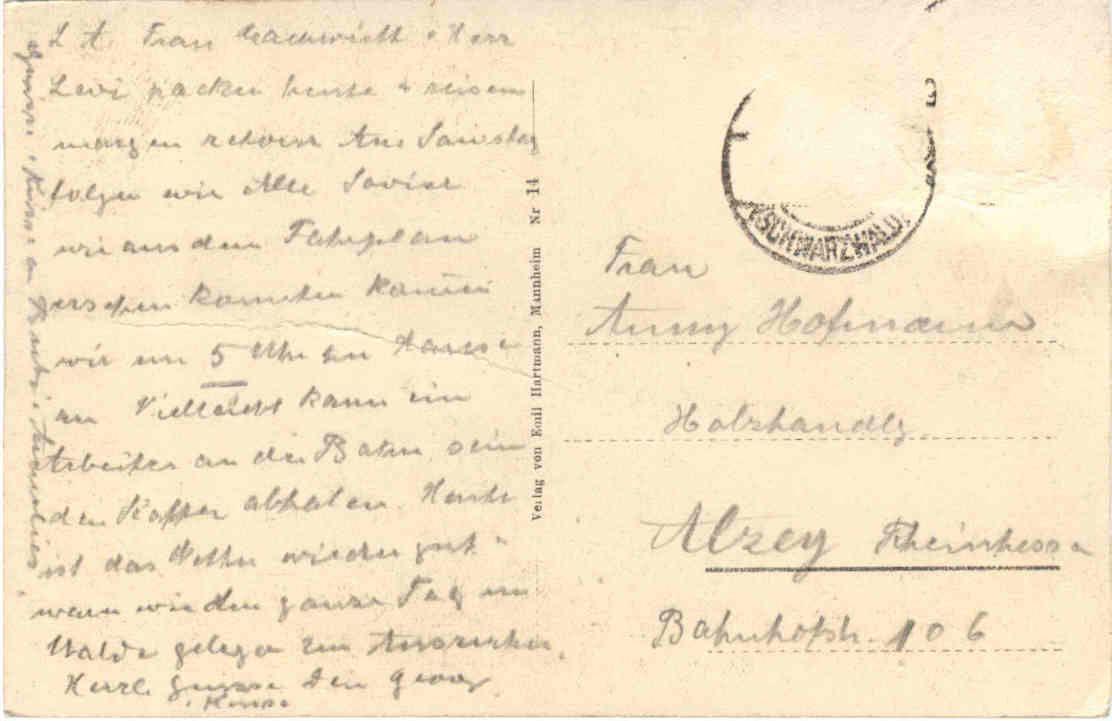 L. A. Frau & Herr
Levi packen heute & reisen
morgen retour Am Samstag
folgen wir Alle Soviel
wir aus dem Fahrplan
ersehen konnten kommen
wir um 5 Uhr zu Hause
an Vielleicht kann ein
Arbeiter an die Bahn sein
den Koffer abholen. Heute
ist das Wetter wieder gut
waren wir den ganze Tag im
Walde gelegen zum
Herzl. Grüsse Dein Georg
& Küsse
Grüsse & Küsse an
Verlag von Emil Hartmann, Mannheim Nr 14
(SCHWARZWALD)
Frau
Anny Hofmann
Holzhandlg.
Alzey Rheinhessen
Bahnhofstr. 106